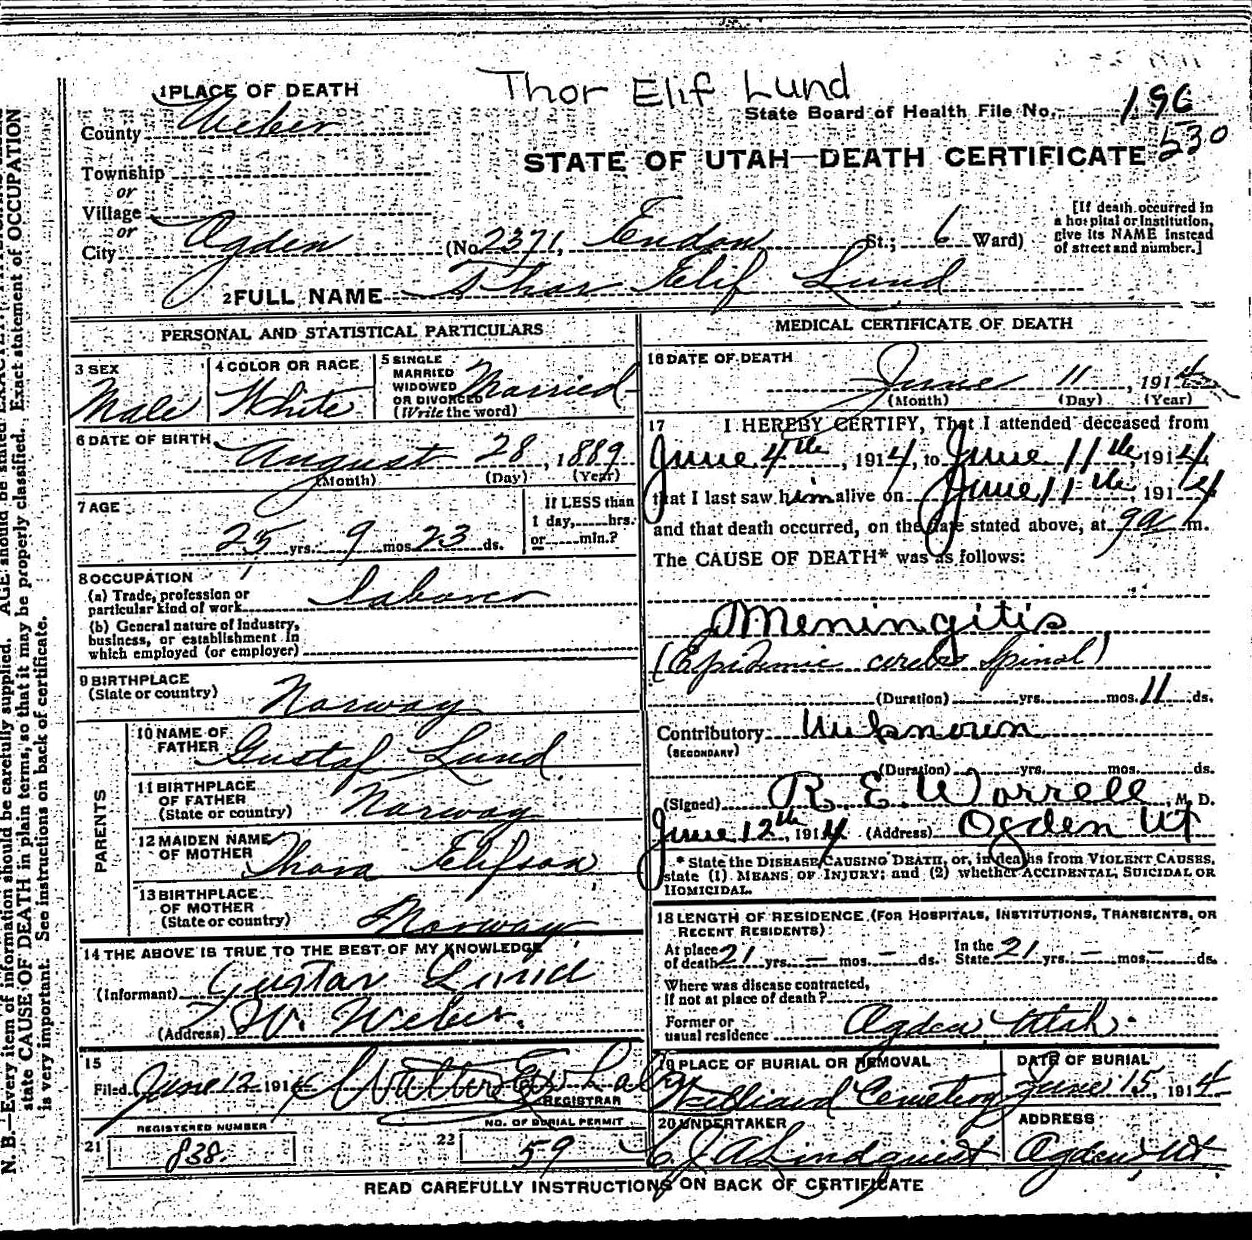 Thor Elif Lund
1 PLACE OF DEATH
State Board of Health File No. 196
530
County Weber
STATE OF UTAH—DEATH CERTIFICATE
Township
or
Village
or
City Ogden (No. 2371, St.; 6 Ward)
[If death occurred in
a hospital or institution,
give its NAME instead
of street and number.]
2 FULL NAME Thor Elif Lund
PERSONAL AND STATISTICAL PARTICULARS
3 SEX
Male
4 COLOR OR RACE
White
5 SINGLE
MARRIED
WIDOWED
OR DIVORCED
(Write the word)
Married
6 DATE OF BIRTH
August 28, 1889
(Month) (Day) (Year)
7 AGE
25 yrs. 9 mos. 23 ds.
If LESS than
1 day, hrs.
or min.?
8 OCCUPATION
(a) Trade, profession or
particular kind of work Laborer
(b) General nature of industry,
business, or establishment in
which employed (or employer)
9 BIRTHPLACE
(State or country) Norway
PARENTS
10 NAME OF
FATHER Gustaf Lund
11 BIRTHPLACE
OF FATHER
(State or country) Norway
12 MAIDEN NAME
OF MOTHER Thora Elifson
13 BIRTHPLACE
OF MOTHER
(State or country) Norway
14 THE ABOVE IS TRUE TO THE BEST OF MY KNOWLEDGE
(Informant) Gustav Lund
(Address) W. Weber.
15
Filed June 12 1914
REGISTRAR
REGISTERED NUMBER
21 838.
NO. OF BURIAL PERMIT
22 59
MEDICAL CERTIFICATE OF DEATH
16 DATE OF DEATH
June 11, 1914
(Month) (Day) (Year)
17 I HEREBY CERTIFY, That I attended deceased from
June 4th, 1914, to June 11th, 1914,
that I last saw him alive on June 11th, 1914
and that death occurred, on the date stated above, at 9 a m.
The CAUSE OF DEATH* was as follows:
Meningitis
(Epidemic cerebro Spinal)
(Duration) yrs. mos. 11 ds.
Contributory Unknown
(SECONDARY)
(Duration) yrs. mos. ds.
(Signed) R. E. Worrell, M. D.
June 12th, 1914 (Address) Ogden Ut
* State the DISEASE CAUSING DEATH, or, in deaths from VIOLENT CAUSES,
state (1) MEANS OF INJURY; and (2) whether ACCIDENTAL, SUICIDAL OR
HOMICIDAL.
18 LENGTH OF RESIDENCE (FOR HOSPITALS, INSTITUTIONS, TRANSIENTS, OR
RECENT RESIDENTS)
At place
of death 21 yrs. — mos. — ds.
In the
State 21 yrs. — mos. — ds.
Where was disease contracted,
if not at place of death?
Former or
usual residence Ogden Utah.
19 PLACE OF BURIAL OR REMOVAL
Cemetery
DATE OF BURIAL
June 15, 1914
20 UNDERTAKER
C. J. A. Lindquist
ADDRESS
Ogden, Ut
READ CAREFULLY INSTRUCTIONS ON BACK OF CERTIFICATE
N. B.—Every item of information should be carefully supplied. AGE should be stated EXACTLY.
state CAUSE OF DEATH in plain terms, so that it may be properly classified. Exact statement of OCCUPATION
is very important. See instructions on back of certificate.